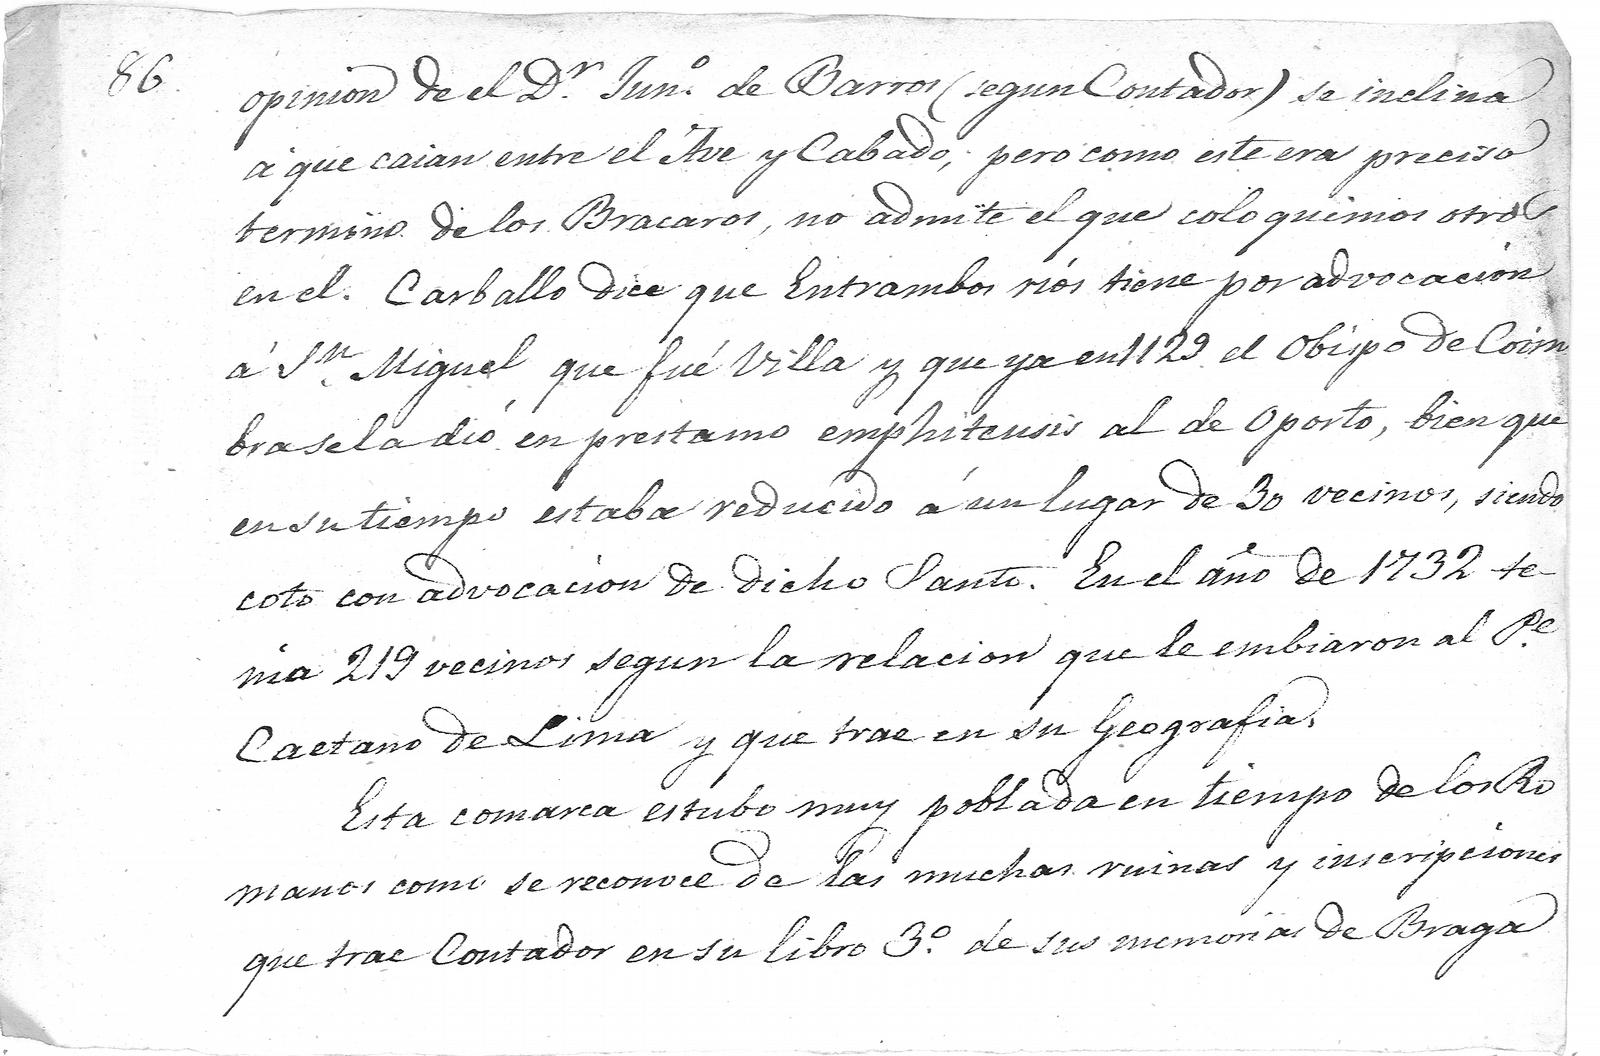 86.
opinion de el D.r Jun.o de Barros (segun Contador) se inclina
á que caian entre el Ave y Cabado, pero como este era preciso
termino de los Bracaros, no admite el que coloquemos otros
en el. Carballo dice que Entrambos rios tiene por advocacion
á S.n Miguel que fué Villa y que ya en 1129 el Obispo de Coim
bra se la dió en prestamo emphiteusis al de Oporto, bien que
en su tiempo estaba reducido á un lugar de 30 vecinos, siendo
coto con advocacion de dicho Santo. En el año de 1732 te-
nia 219 vecinos segun la relacion que le embiaron al P.e
Caetano de Lima y que trae en su Geografia.
Esta comarca estubo muy poblada en tiempo de los Ro
manos como se reconoce de las muchas ruinas y inscripciones
que trae Contador en su libro 3.o de sus memorias de Braga